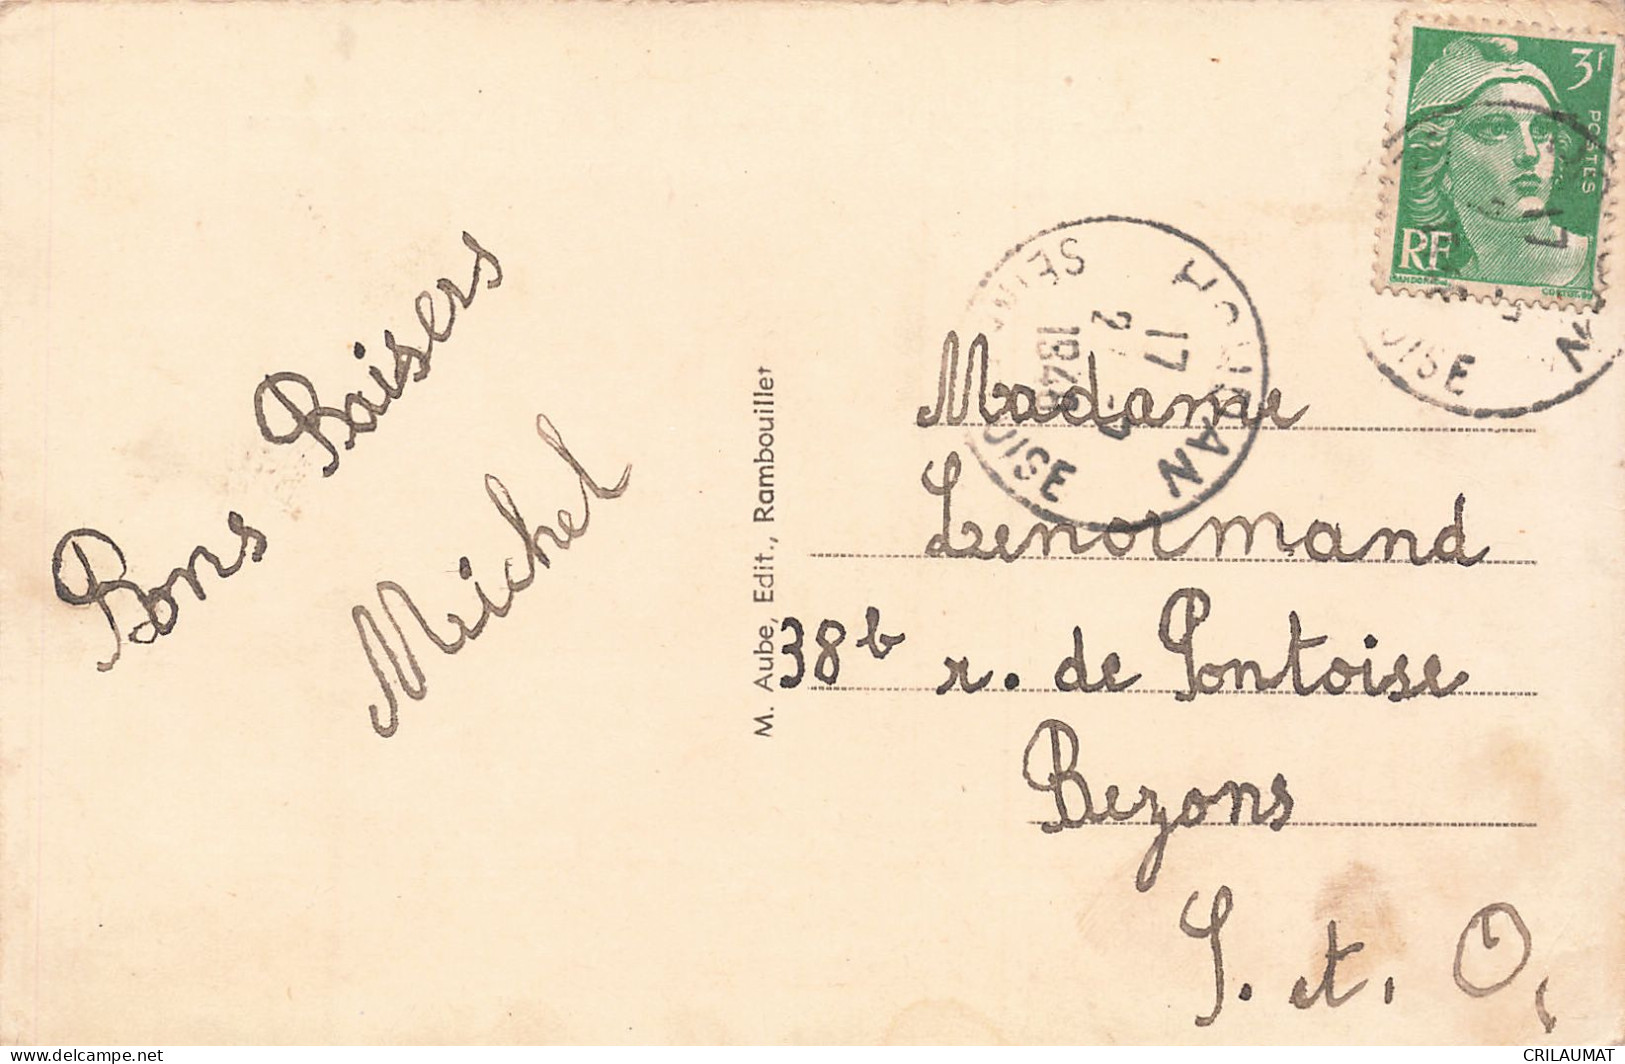 Bons Baisers
Michel
M. Aube, Edit., Rambouillet
3f
POSTES
RF
HOUDAN
17
1948
SEINE
OISE
17
OISE
Madame
Lenormand
38b r. de Pontoise
Bezons
S. et. O.
delcampe.net
CRILAUMAT